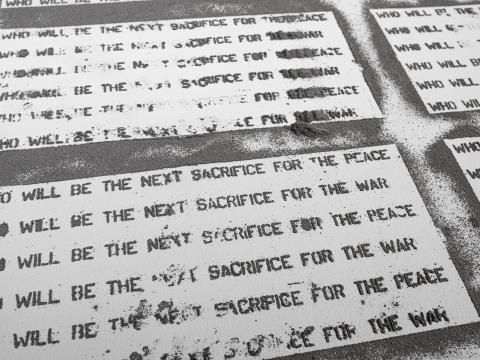 WHO WILL BE THE NEXT SACRIFICE FOR THE PEACE
WILL BE THE NEXT SACRIFICE FOR THE WAR
BE THE NEXT SACRIFICE FOR PEACE
WILL BE THE NEXT SACRIFICE FOR WAR
BE THE NEXT FOR PEACE
HO WILL BE THE NEXT CE FOR WAR
WHO WILL BE THE
WHO WILL BE
WHO WILL BE
WHO WILL
WHO WILL
WHO WILL
O WILL BE THE NEXT SACRIFICE FOR THE PEACE
WILL BE THE NEXT SACRIFICE FOR THE WAR
WILL BE THE NEXT SACRIFICE FOR THE PEACE
WILL BE THE NEXT SACRIFICE FOR THE WAR
WILL BE THE SACRIFICE FOR THE PEACE
CE FOR THE WAR
WHO